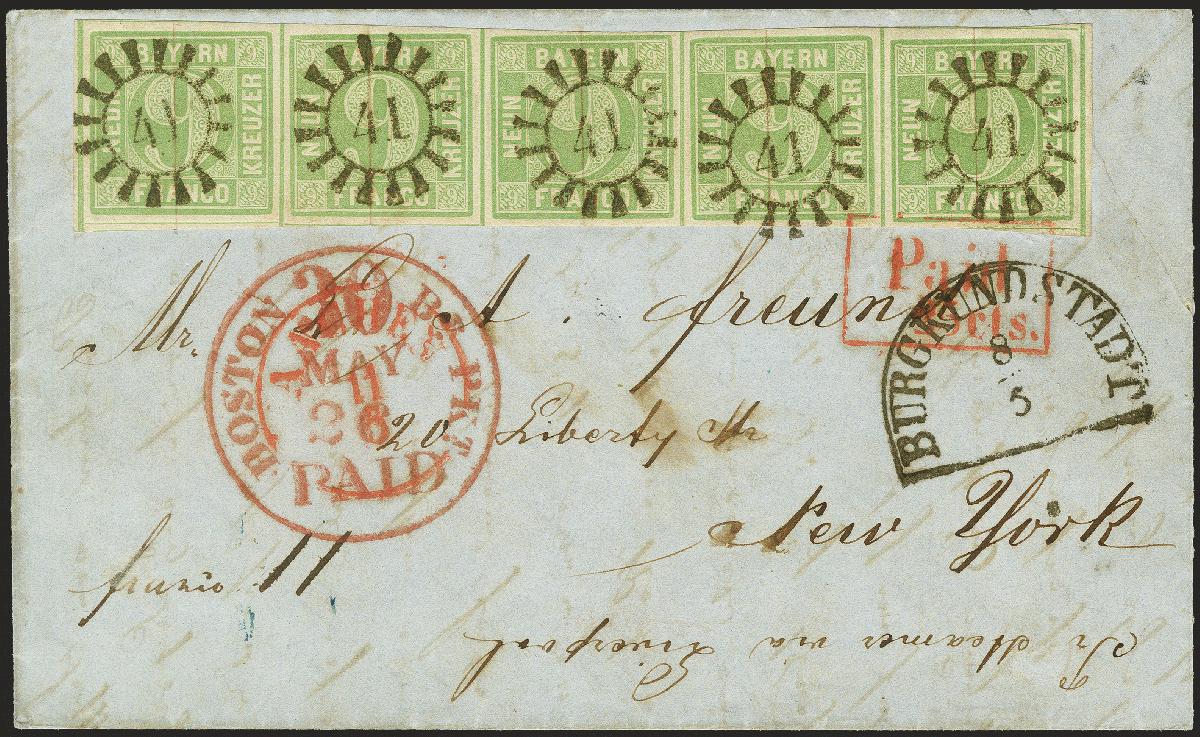 BAYERN NEUN 9 KREUZER FRANCO 41
BAYERN NEUN 9 KREUZER FRANCO 41
BAYERN NEUN 9 KREUZER FRANCO 41
BAYERN NEUN 9 KREUZER FRANCO 41
BAYERN NEUN 9 KREUZER FRANCO 41
Paid
cts.
BOSTON BR. PKT.
20
MAY
26
PAID
BURGKUNDSTADT
8
5
Mr.
20 Liberty Str
New York
franco 11
Pr steamer via Liverpool